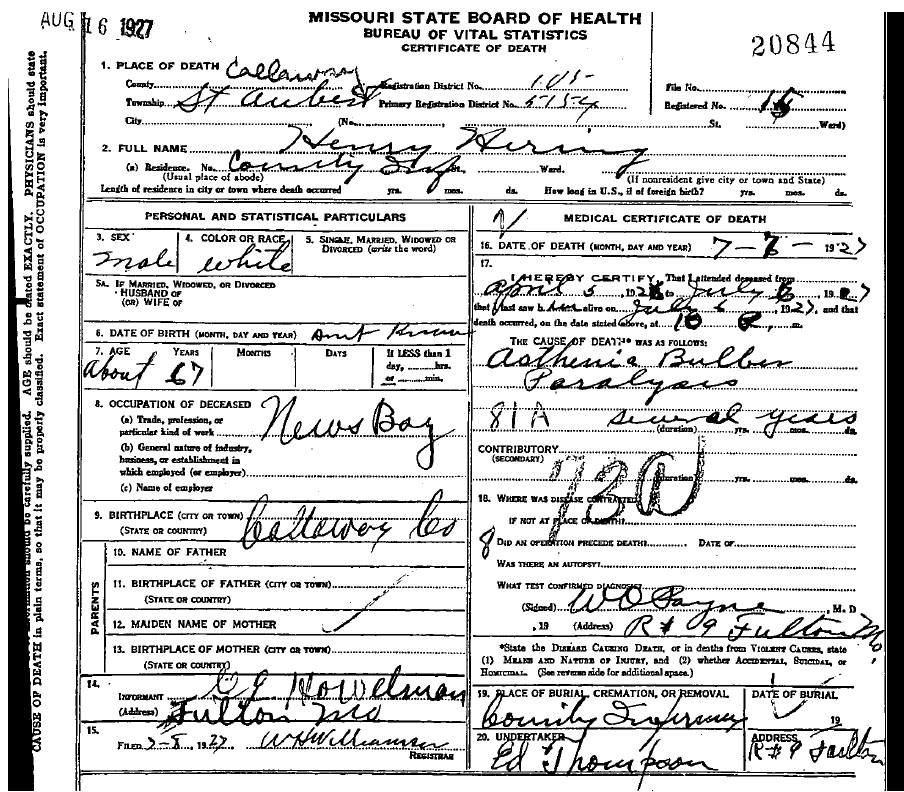 AUG 16 1927
MISSOURI STATE BOARD OF HEALTH
BUREAU OF VITAL STATISTICS
CERTIFICATE OF DEATH
20844
1. PLACE OF DEATH
County Callaway Registration District No. 105 File No.
Township St Aubert Primary Registration District No. 5154 Registered No. 15
City (No. St. Ward)
2. FULL NAME Henry Hering
(a) Residence. No. County Inf St. Ward.
(Usual place of abode) (If nonresident give city or town and State)
Length of residence in city or town where death occurred yrs. mos. ds. How long in U.S., if of foreign birth? yrs. mos. ds.
PERSONAL AND STATISTICAL PARTICULARS
3. SEX 4. COLOR OR RACE 5. SINGLE, MARRIED, WIDOWED OR
DIVORCED (write the word)
male white
5A. IF MARRIED, WIDOWED, OR DIVORCED
HUSBAND OF
(OR) WIFE OF
6. DATE OF BIRTH (MONTH, DAY AND YEAR) Know
7. AGE YEARS MONTHS DAYS If LESS than 1
day, hrs.
or min.
About 67
8. OCCUPATION OF DECEASED
(a) Trade, profession, or
particular kind of work News Boy
(b) General nature of industry,
business, or establishment in
which employed (or employer)
(c) Name of employer
9. BIRTHPLACE (CITY OR TOWN)
(STATE OR COUNTRY) Callaway Co
PARENTS
10. NAME OF FATHER
11. BIRTHPLACE OF FATHER (CITY OR TOWN)
(STATE OR COUNTRY)
12. MAIDEN NAME OF MOTHER
13. BIRTHPLACE OF MOTHER (CITY OR TOWN)
(STATE OR COUNTRY)
14.
INFORMANT
(Address) Fulton Mo
15.
FILED 7-8, 1927 W H Williamson
REGISTRAR
MEDICAL CERTIFICATE OF DEATH
16. DATE OF DEATH (MONTH, DAY AND YEAR) 7- - 1927
17.
I HEREBY CERTIFY, That I attended deceased from
April 5, 192 to July 6, 19
that I last saw him alive on July 6, 1927, and that
death occurred, on the date stated above, at 10 P. m.
THE CAUSE OF DEATH* WAS AS FOLLOWS:
Asthenia Bulber
Paralysis
81A several years
(duration) yrs. mos. ds.
CONTRIBUTORY
(SECONDARY)
(duration) yrs. mos. ds.
18. WHERE WAS DISEASE CONTRACTED
IF NOT AT PLACE OF DEATH?
8 DID AN OPERATION PRECEDE DEATH? DATE OF
WAS THERE AN AUTOPSY?
WHAT TEST CONFIRMED DIAGNOSIS?
(Signed) W O Payne, M. D
, 19 (Address) R # 9 Fulton Mo.
*State the DISEASE CAUSING DEATH, or in deaths from VIOLENT CAUSES, state
(1) MEANS AND NATURE OF INJURY, and (2) whether ACCIDENTAL, SUICIDAL, or
HOMICIDAL. (See reverse side for additional space.)
19. PLACE OF BURIAL, CREMATION, OR REMOVAL DATE OF BURIAL
County Infirmary 19
20. UNDERTAKER ADDRESS
Ed Thompson R#9 Fulton
should be carefully supplied. AGE should be stated EXACTLY. PHYSICIANS should state
CAUSE OF DEATH in plain terms, so that it may be properly classified. Exact statement of OCCUPATION is very important.